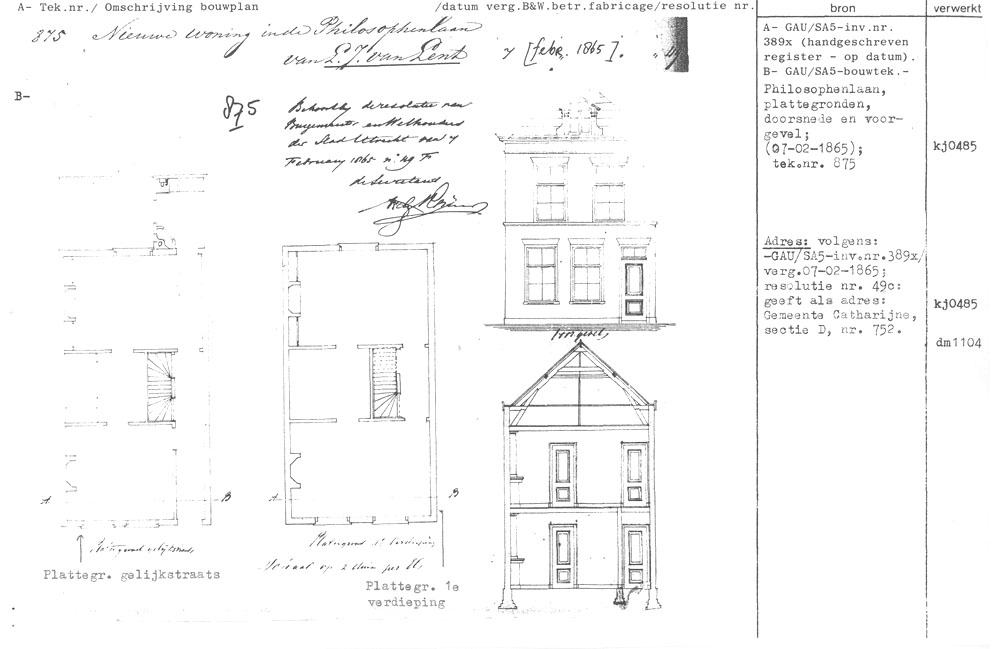 A- Tek.nr./ Omschrijving bouwplan /datum verg.B&W.betr.fabricage/resolutie nr. bron verwerkt
875 Nieuwe woning in de Philosophenlaan
van L. J. van Lent 7 [febr. 1865]. " 49
B-
875
Behoort bij de resolutie van
Burgemeester en Wethouders
der Stad Utrecht van 7
February 1865 nº 49 F
de Secretaris
voorgevel,
A B
A B
Plattegrond 1e verdieping
Schaal op 2 duim per El.
Plattegr. gelijkstraats
Plattegr. 1e
verdieping
A- GAU/SA5-inv.nr.
389x (handgeschreven
register - op datum).
B- GAU/SA5-bouwtek.-
Philosophenlaan,
plattegronden,
doorsnede en voor-
gevel;
(07-02-1865);
tek.nr. 875
kj0485
Adres: volgens:
-GAU/SA5-inv.nr.389x/
verg.07-02-1865;
resolutie nr. 49c:
geeft als adres:
Gemeente Catharijne,
sectie D, nr. 752.
kj0485
dm1104